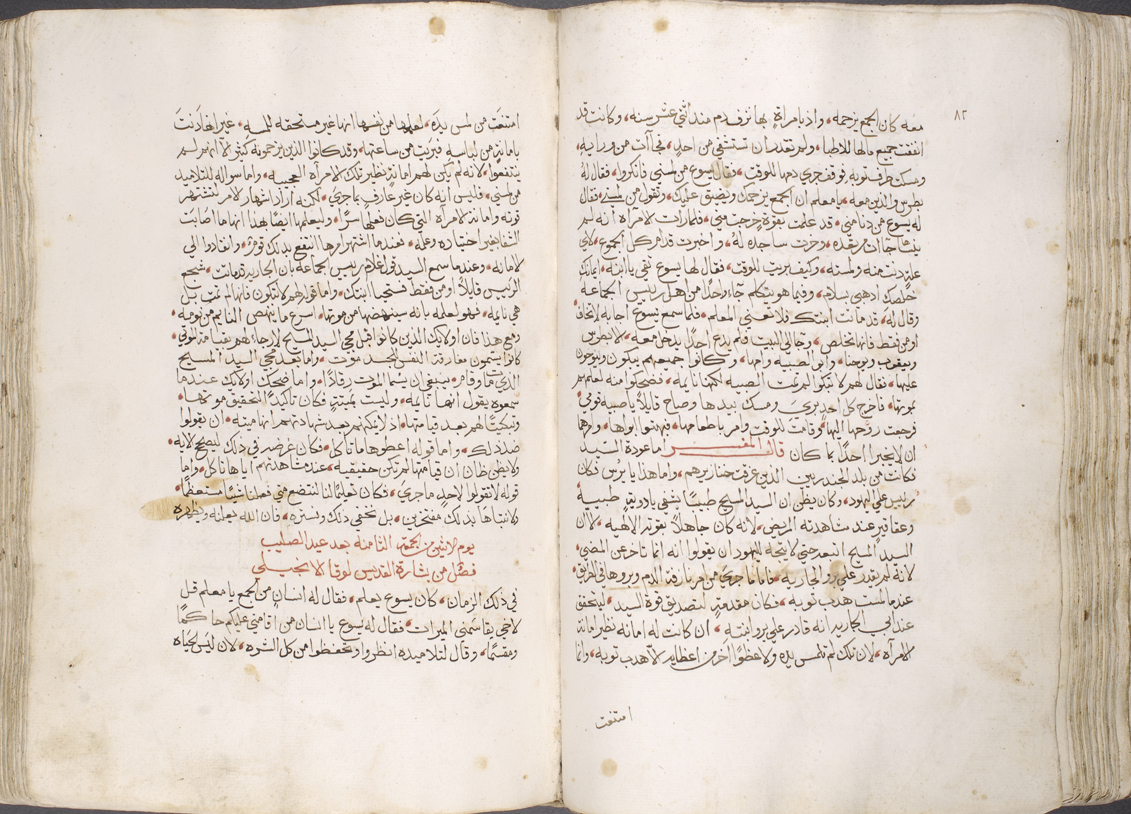 ٨٢
معه كان الجمع يزحمه، واذ امراة بها نزف دم مند اثني عشر سنه، وكانت قد
انفقت جميع مالها للاطبا، ولم تقدر ان تستشفي من احدٍ، فجآت من ورايه،
ومسكت طرف ثوبه فوقف جري دمها للوقت، فقال يسوع من لمسني فانكروا، فقال له
بطرس والذين معه، يا معلم ان الجمع يزحمك ويضيق عليك، وتقول من لمسني، فقال
له يسوع من دنا مني، قد علمت بقوة خرجت مني، فلما رات الامرآه انه لم
ينسَاها جات مرتعده، وخرت ساجده لهُ، واخبرت قدام كل الجموع، لاي
علةٍ دنت منه ولمسته، وكيف بريت للوقت، فقال لها يسوع ثقي يا ابنه، ايمانك
خلصك ادهبي بسلام، وفيما هو يتكلم جآء واحدًا من اهل رييس الجماعه
وقال لهُ، قد ماتت ابنتك فلا تعني المعلم، فلما سمع يسوع اجابه لا تخاف
اومن فقط فانها تخلص، وجا الي البيت فلم يدع احدًا يدخل معه، الا بطرس
ويعقوب ويوحنا، وابو الصبيه وامها، وكانوا جميعهم يبكون وينوحون
عليها، فقال لهم لا تبكوا لم تمت الصبيه لكنها نايمه، فضحكوا منه لعلمهم
بموتها، فاخرج كل احدٍ برى، ومسك بيدها وصاح قايلًا يا صبيه قومي،
فرجعت روحها اليها وقامت للوقت وامر باطعامها، فبهتوا ابواها، وامرهما
ان لا يخبرا احدًا بما كان قال المفسر اما عودة السيد
فكانت من بلد الجرجسيين الذين غرقت خنازيرهم، واما هذا يايرس فكان
رييس علي اليهود، وكان يظن ان السيد المسيح طبيبًا يشفي بادويةٍ طبيبية
وعقاقير عند مشاهدته المريض، لانه كان جاهلًا بقوته الالهيه، لان
السيد المسيح انتهرهم حتي لا يتجه لليهود ان يقولوا انه انما تاخر عن المضي،
لانه لم يقدر علي برو الجاريه، فاما ما جري من امر نازفة الدم وبروها في الطريق
عندما لمست هدب ثوبه، فكان مقدمةٍ لتصديق قوة السيد، ليتحقق
عند ابي الجاريه انه قادر علي برو ابنته، ان كانت له امانه نظير امانة
الامرآه، لان تلك لم تلمس يده ولا عظوًا اخر من اعظايه الا هدب ثوبه، وانما
امتنعت
امتنعَت من لمس يدَه، لعلمها من نفسها انها غير مستحقه للمسه، غير انها دَنتَ
بامانةٍ من لباسهِ فبريَت من ساعتها، وقد كانوا الذين يزحمونه كثير الا انهم لم
ينتفعوا، لانه لم تكن لهم امانة نظير تلك الامرآه العجيبه، واما سواله للتلاميد
من لمسني، فليس انه كان غير عارفٍ بما جري، لكنه اراد اشهار الامر لتشتهر
قوته وامانة الامرآه التي كان فعلها سرًا، وليعلمها ايضًا هذا انها ما اصابت
الشفا بغير اختياره وعلمه، فعندما اشتهر امرها انتفع بدلك قوم، وانقادوا الي
الامانه، وعندما سمع السيد قول غلام رييس الجماعه بان الجاريه قد ماتت، شجع
الرييس قايلًا اومن فقط فستحيا ابنتك، واما قوله لهم لا تبكون فانها لم تمت بل
هي نايمه، فهو لعلمه بانه سينهضها من موتها، اسرع مما ينهض النايم من نومه،
ومع هذا فان اولايك الذين كانوا قبل مجي السيد المسيح لا رجاء لهم بقيامة الموتي
كانوا يسمون مفارقة النفس للجسد موت، واما بعد مجي السيد المسيح
الذي مَات وقام، فينبغي ان يسما الموت رقادًا، واما ضحك اولايك عندما
سمعوه يقول انها نايمه، وليست بميتةٍ فكان تاكيدًا لتحقيق موتها،
وتبكيتًا لهم بعد قيامتها، اذ لا يمكنهم بعد شهادتهم انها ميته، ان يقولوا
ضد ذلك، واما قوله اعطوها ما تاكل، فكان غرضه في ذلك ليصح الايه،
ولا يظن ظان ان قيامتها لم تكن حقيقيه، عند مشاهدتهم اياها تاكل، واما
قوله لا تقولوا لاحدٍ ما جري، فكان تعليمًا لنا لنتضع متي فعلنا شيًا مستعظمًا،
ولا نتباها بذلك مفتخرين، بل نخفي ذلك ونستره، فان الله يعلمه ويظهره
يوم الاثنين من الجمعة الثامنه بعد عيد الصليب
فصل من بشارة القديس لوقا الانجيلي
في ذلك الزمان، كان يسوع يعلم، فقال له انسان من الجمع يا معلم قل
لاخي يقاسمني الميراث، فقال له يسوع يا انسان من اقامني عليكم حاكمًا
ومقسمًا، وقال لتلاميده انظروا وتحفظوا من كل الشره، لان ليسَ الحياه